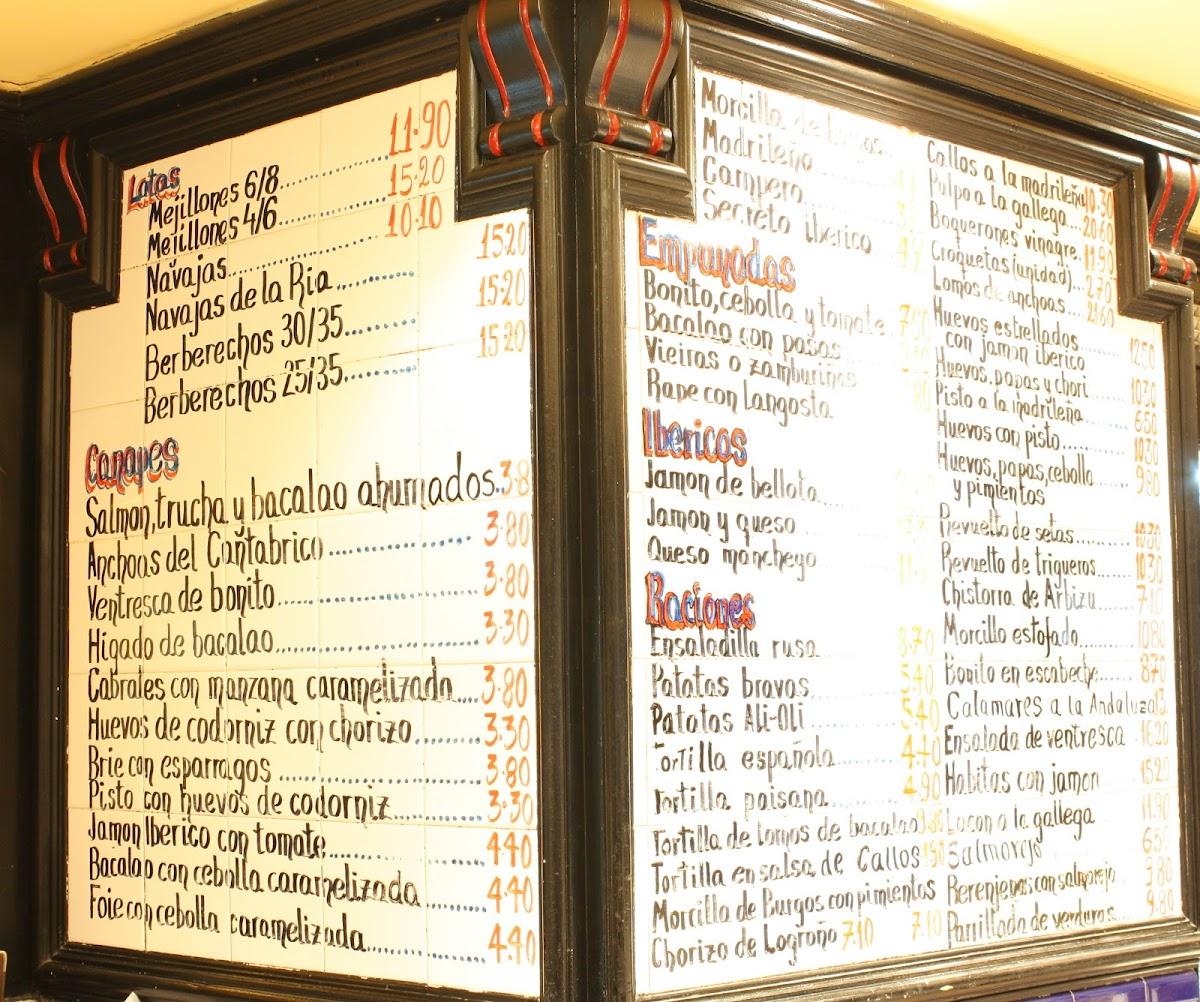 Latas
Mejillones 6/8 11·90
Mejillones 4/6 15·20
Navajas 10·10
Navajas de la Ria 15·20
Berberechos 30/35 15·20
Berberechos 25/35 15·20
Canapes
Salmon, trucha y bacalao ahumados 3·8
Anchoas del Cantabrico 3·80
Ventresca de bonito 3·80
Higado de bacalao 3·30
Cabrales con manzana caramelizada 3·80
Huevos de codorniz con chorizo 3·30
Brie con esparragos 3·80
Pisto con huevos de codorniz 3·30
Jamon Iberico con tomate 4·40
Bacalao con cebolla caramelizada 4·40
Foie con cebolla caramelizada 4·40
Morcilla de
Madrileño
Campero
Secreto iberico
Empanadas
Bonito, cebolla y tomate
Bacalao con pasas
Vieiras o zamburiñas
Rape con langosta
Ibericos
Jamon de bellota
Jamon y queso
Queso manchego
Raciones
Ensaladilla rusa
Patatas bravas 5·40
Patatas Ali-Oli 5·40
Tortilla española 4·40
Tortilla paisana 4·90
Tortilla de lomos de bacalao
Tortilla en salsa de Callos
Morcilla de Burgos con pimientos 7·10
Chorizo de Logroño 7·10
Callos a la madrileña 10·30
Pulpo a la gallega 20·60
Boquerones vinagre 11·90
Croquetas (unidad) 2·70
Lomos de anchoas 21·60
Huevos estrellados
con jamon iberico 12·50
Huevos, papas y chori 10·30
Pisto a la madrileña 6·50
Huevos con pisto 10·30
Huevos, papas, cebolla 9·80
y pimientos
Revuelto de setas 10·30
Revuelto de trigueros 10·30
Chistorra de Arbizu 7·10
Morcillo estofado 10·80
Bonito en escabeche 8·70
Calamares a la Andaluza 13
Ensalada de ventresca 16·20
Habitas con jamon 15·20
Lacon a la gallega 11·90
Salmorejo 6·50
Berenjenas con salmorejo 9·80
Parrillada de verduras 9·80